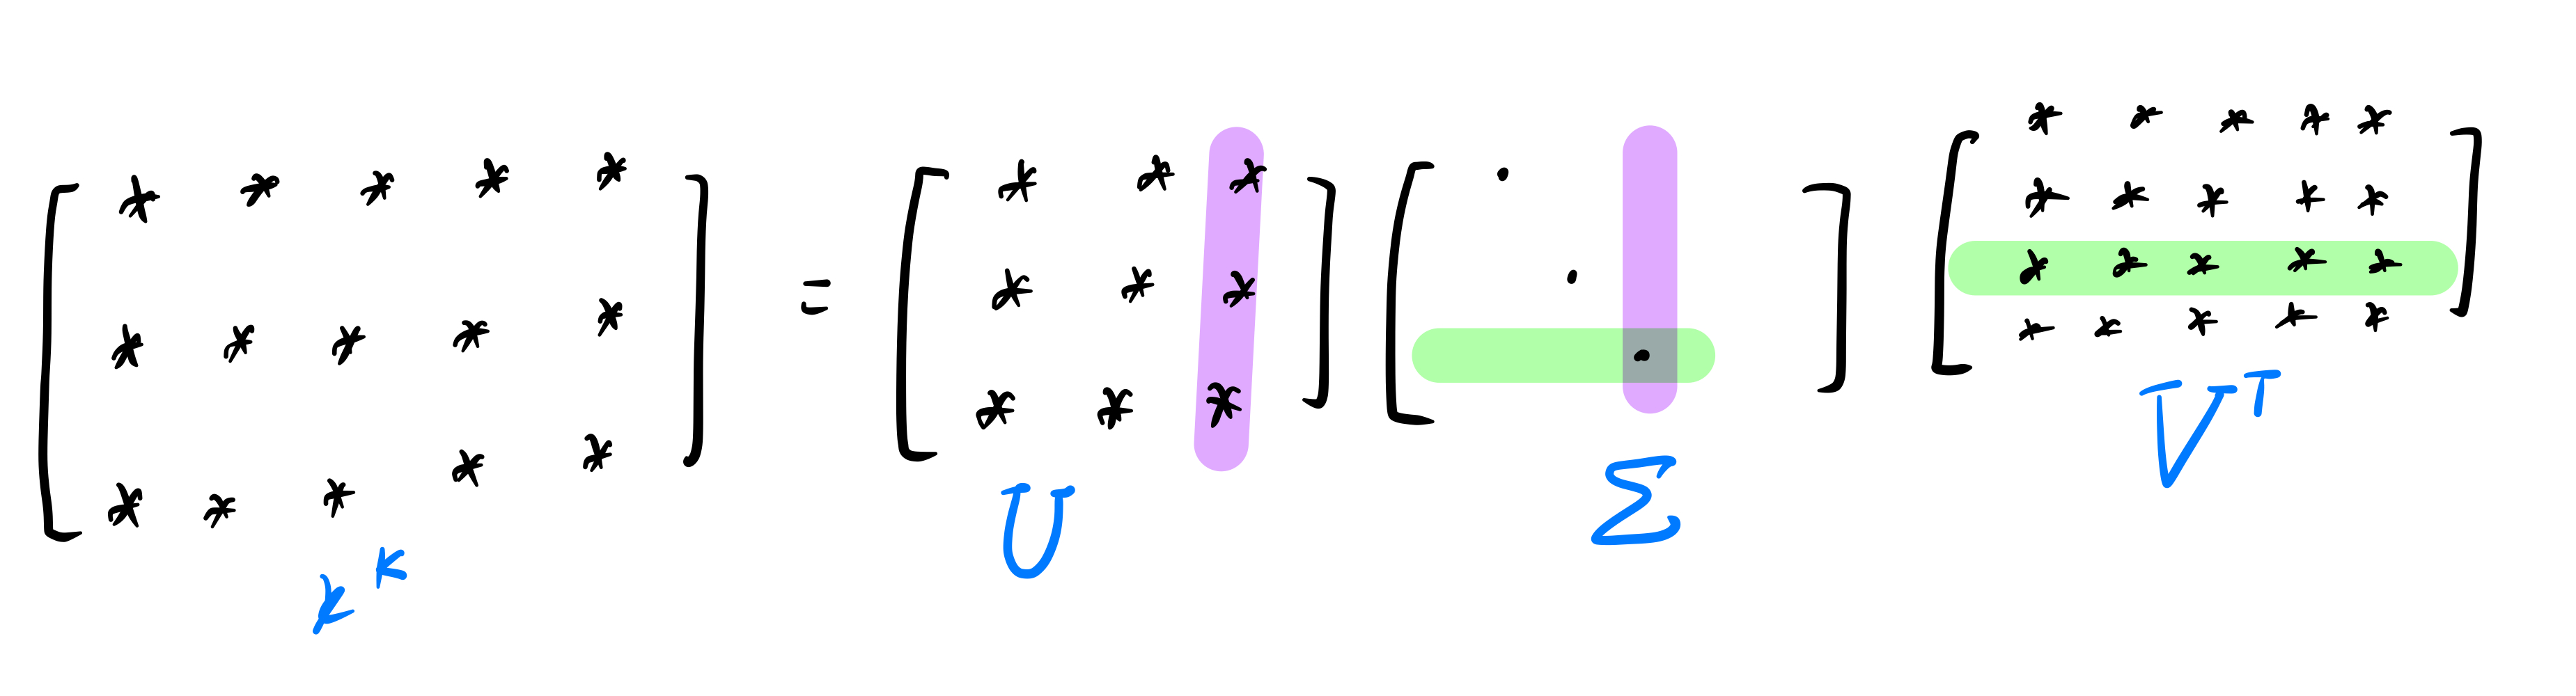 [ * * * * * ] = [ * * * ] [ · ] [ * * * * * ]
[ * * * * * ] [ * * * ] [ · ] [ * * * * * ]
[ * * * * * ] [ * * * ] [ · ] [ * * * * * ]
[ * * * * * ]
K U Σ Vᵀ